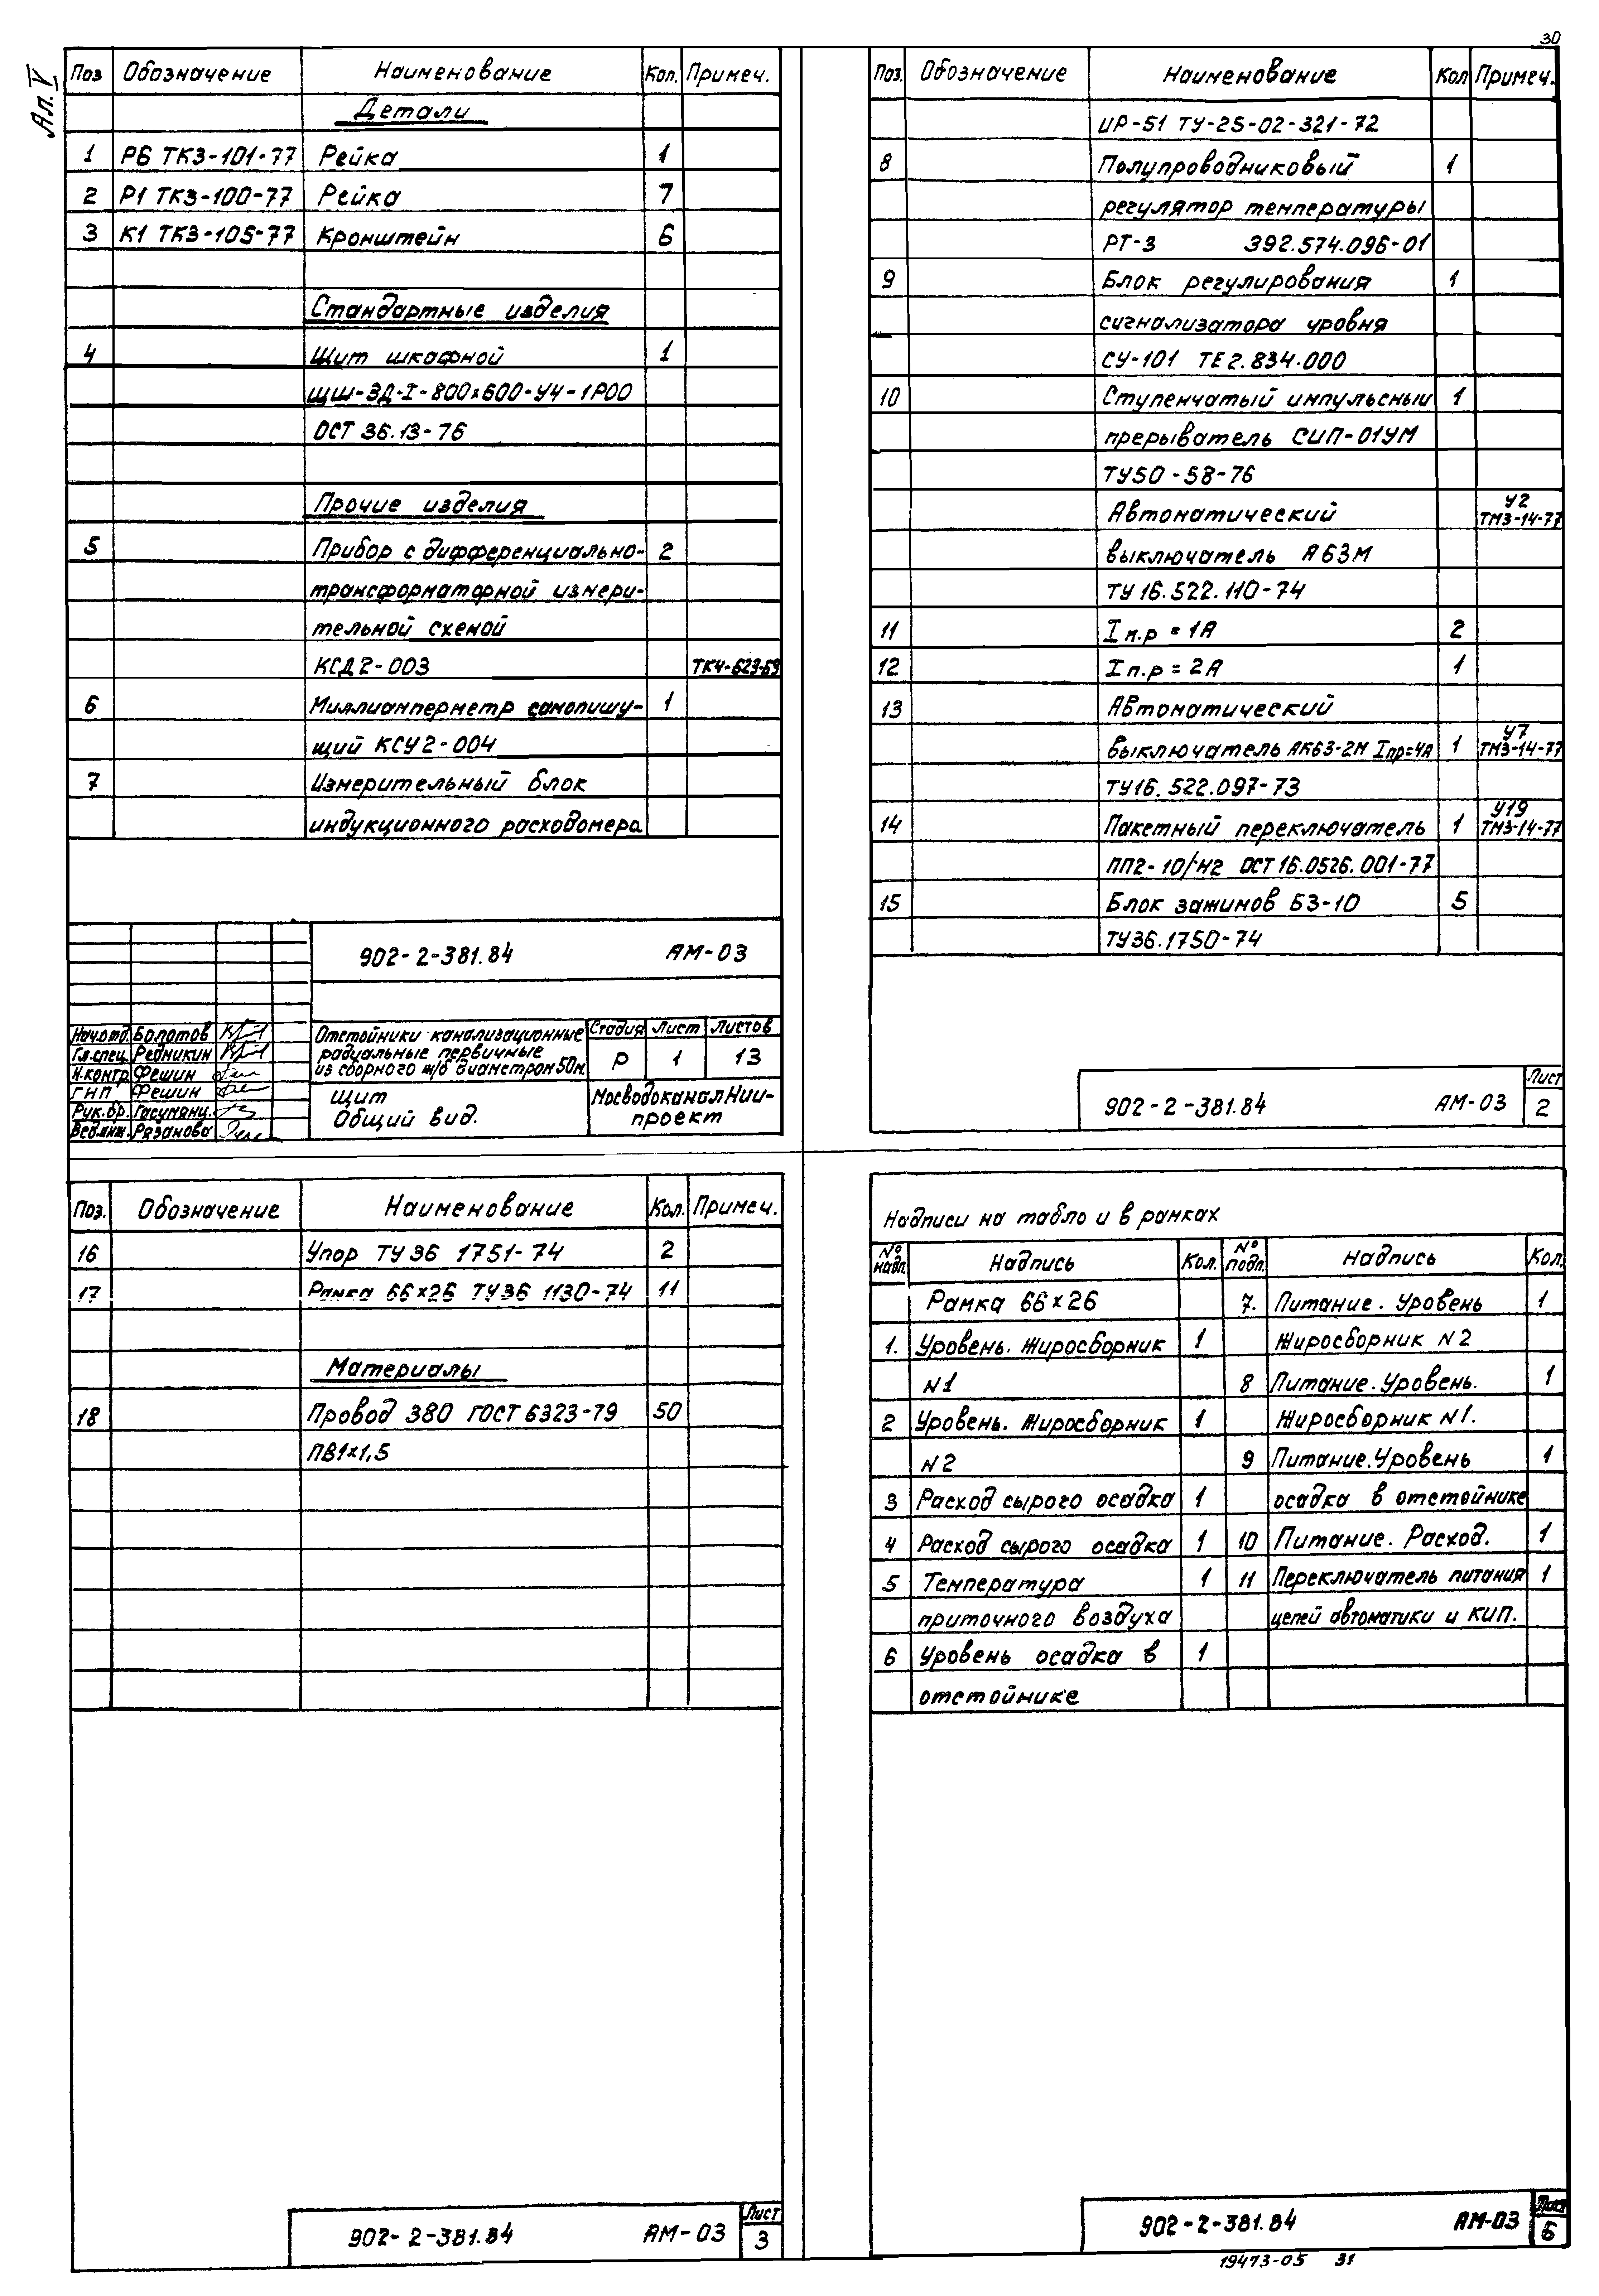 30
Ал. V
Поз Обозначение Наименование Кол. Примеч.
Детали
1 Р6 ТК3-101-77 Рейка 1
2 Р1 ТК3-100-77 Рейка 7
3 К1 ТК3-105-77 Кронштейн 6
Стандартные изделия
4 Щит шкафной 1
ЩШ-ЗД-I-800х600-У4-1Р00
ОСТ 36.13-76
Прочие изделия
5 Прибор с дифференциально- 2
трансформаторной измери-
тельной схемой
КСД2-003 ТК4-623-69
6 Миллиамперметр самопишу- 1
щий КСУ2-004
7 Измерительный блок
индукционного расходомера
902-2-381.84 АМ-03
Нач.отд. Болотов
Гл.спец. Редникин
Н.контр. Фешин
ГНП Фешин
Рук.бр. Гасумянц.
Вед.инж. Рязанова
Отстойники канализационные
радиальные первичные
из сборного ж/б диаметром 50м.
Стадия Лист Листов
Р 1 13
Щит
Общий вид.
МосводоканалНИИ-
проект
Поз. Обозначение Наименование Кол Примеч.
ИР-51 ТУ-25-02-321-72
8 Полупроводниковый 1
регулятор температуры
РТ-3 392.574.096-01
9 Блок регулирования 1
сигнализатора уровня
СУ-101 ТЕ2.834.000
10 Ступенчатый импульсный 1
прерыватель СИП-01УМ
ТУ50-58-76
Автоматический У2
ТМ3-14-77
выключатель А63М
ТУ16.522.110-74
11 Iн.р = 1А 2
12 Iп.р = 2А 1
13 Автоматический
выключатель АК63-2М Iпр=4А 1 У7
ТМ3-14-77
ТУ16.522.097-73
14 Пакетный переключатель 1 У19
ТМ3-14-77
ПП2-10/Н2 ОСТ 16.0526.001-77
15 Блок зажимов БЗ-10 5
ТУ36.1750-74
902-2-381.84 АМ-03
Лист
2
Поз. Обозначение Наименование Кол. Примеч.
16 Упор ТУ36 1751-74 2
17 Рамка 66х26 ТУ36 1130-74 11
Материалы
18 Провод 380 ГОСТ 6323-79 50
ПВ1х1,5
902-2-381.84 АМ-03
Лист
3
Надписи на табло и в рамках
№ надп. Надпись Кол. № подп. Надпись Кол.
Рамка 66х26 7. Питание. Уровень 1
1. Уровень. Жиросборник 1 Жиросборник N2
N1 8 Питание. Уровень. 1
2 Уровень. Жиросборник 1 Жиросборник N1.
N2 9 Питание. Уровень 1
3 Расход сырого осадка 1 осадка в отстойнике
4 Расход сырого осадка 1 10 Питание. Расход. 1
5 Температура 1 11 Переключатель питания 1
приточного воздуха цепей автоматики и КИП.
6 Уровень осадка в 1
отстойнике
902-2-381.84 АМ-03
Лист
6
19473-05 31